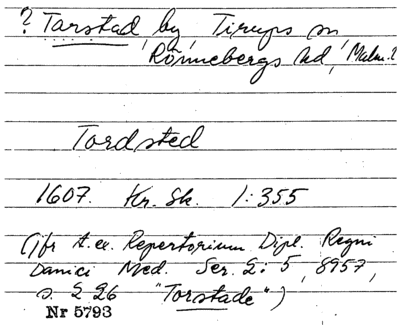 ? Tarstad, by, Tirups sn,
Rönnebergs hd, Malm. ?
Tordsted
1607. Kr. Sk. 1:355
(Jfr t. ex. Repertorium Dipl. Regni
Danici Med. Ser. 2: 5, 8957,
s. 226 "Torstade")
Nr 5793